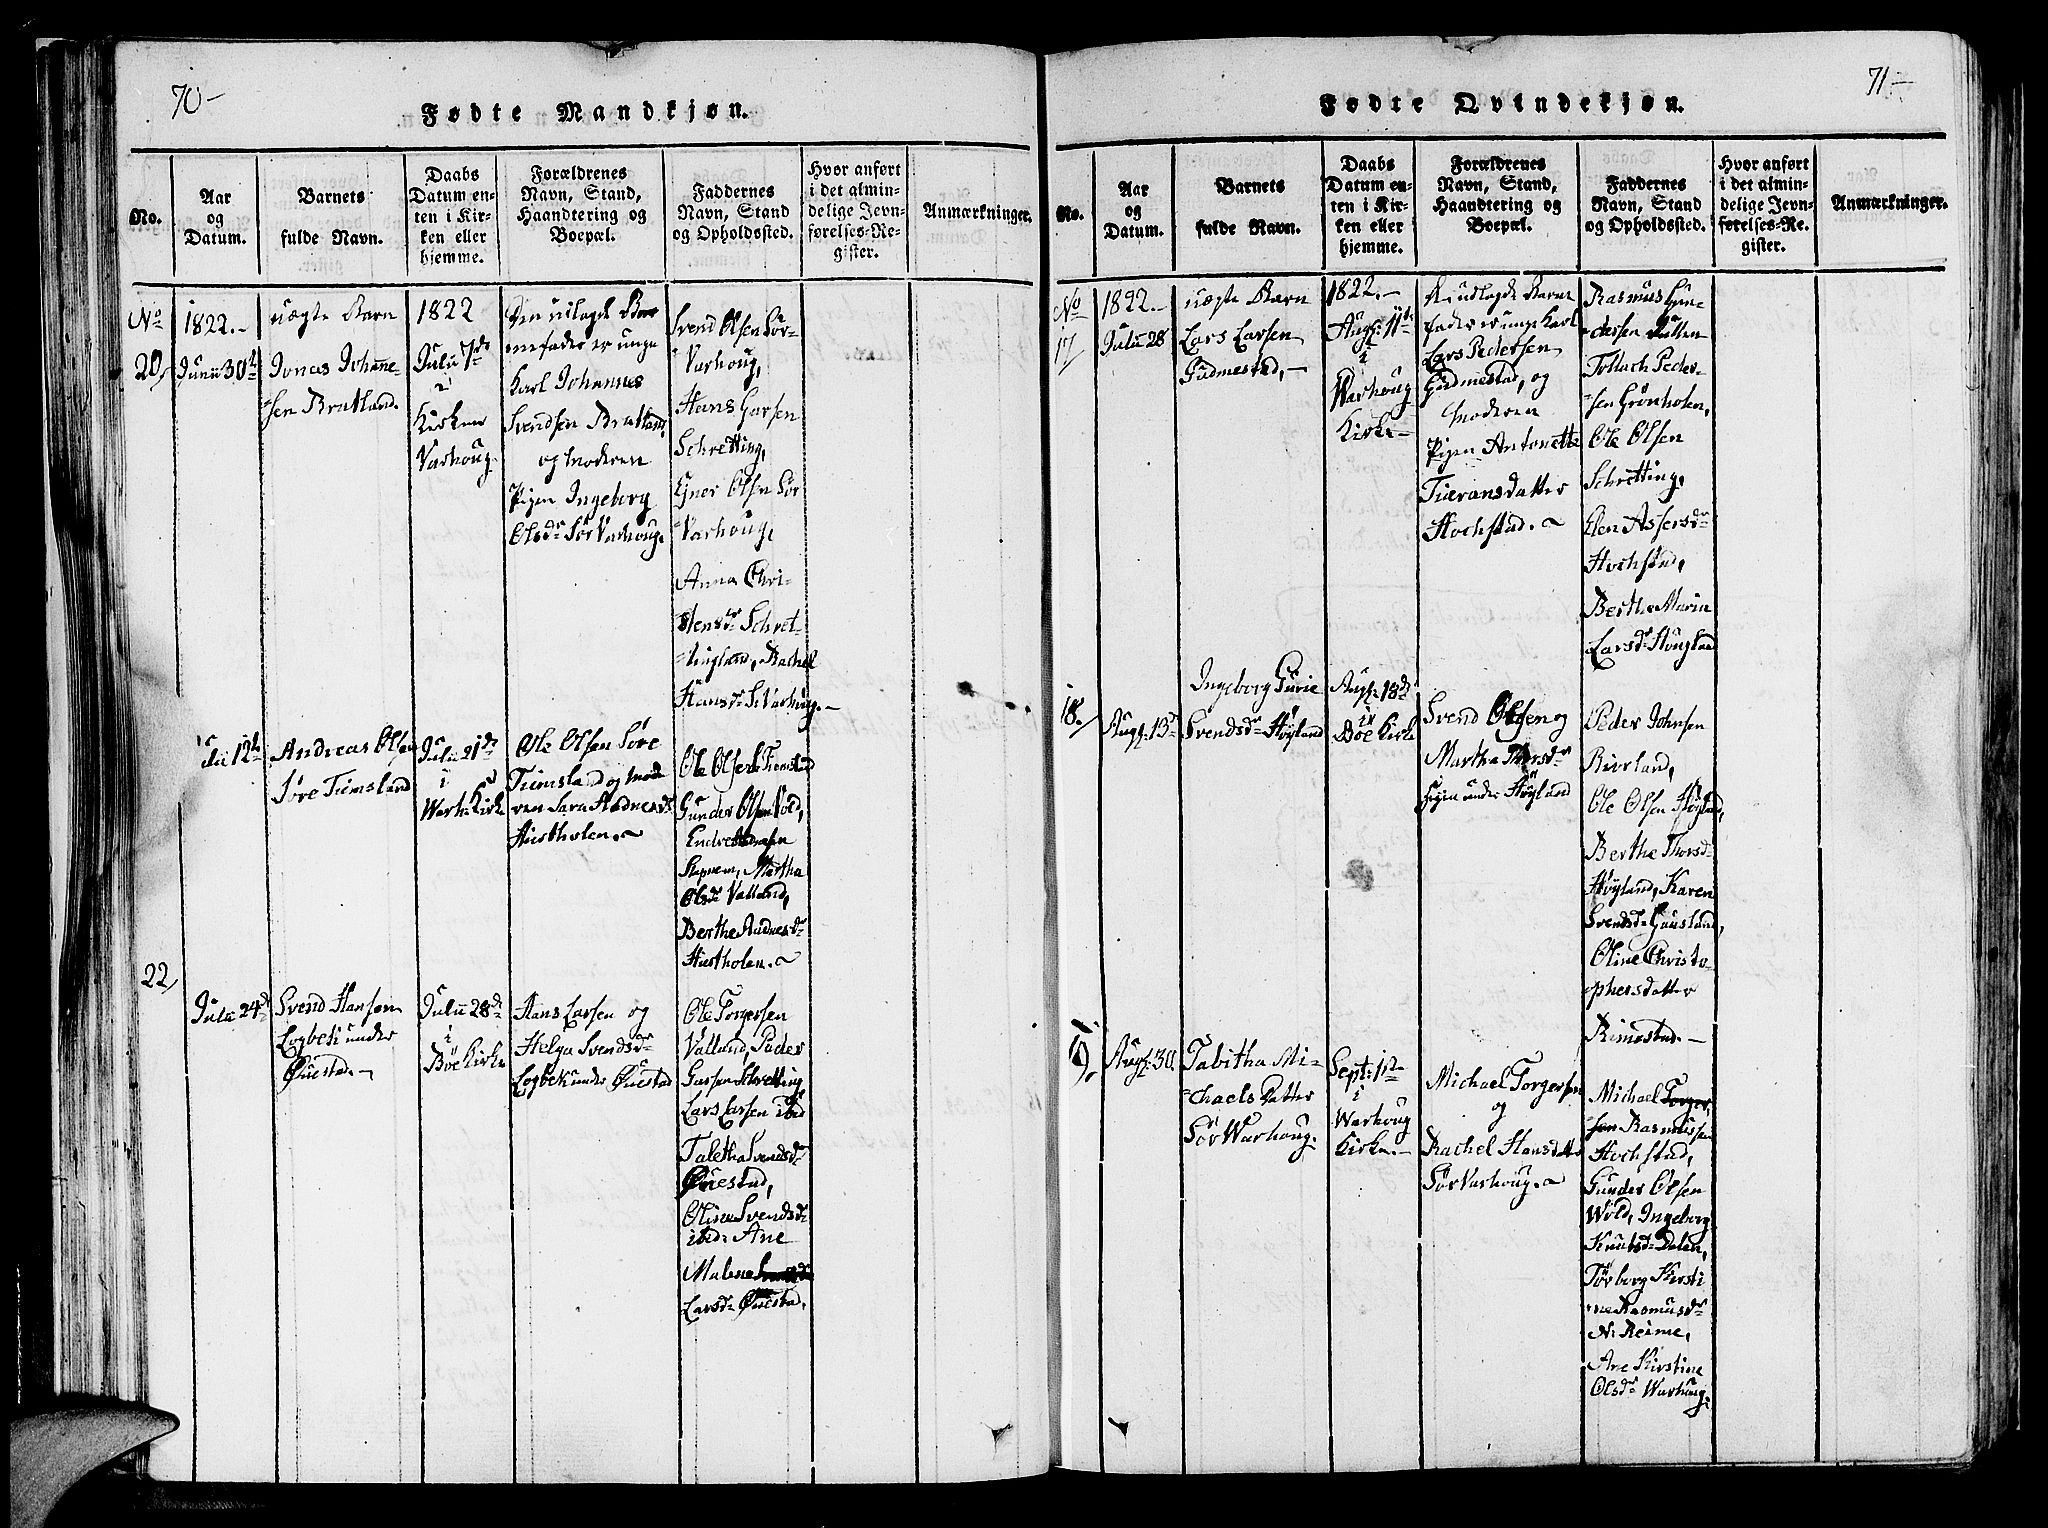 70-
Fødte Mandkjøn.
No.
Aar
og
Datum.
Barnets
fulde Navn.
Daabs
Datum en-
ten i Kir-
ken eller
hjemme.
Forældrenes
Navn, Stand,
Haandtering og
Boepæl.
Faddernes
Navn, Stand
og Opholdssted.
Hvor anført
i det almin-
delige Jevn-
førelses-Re-
gister.
Anmærkninger.
No
20,
1822.-
Junii 30te
uægte Barn
Jonas Johanne-
sen Bratland.
1822
Julii 7de
i
Kirken
Varhoug.
Den udlagde Bar
nefader er unge
Karl Johannes
Svendsen Bratland,
og Moderen
Pigen Ingeborg
Olsdr Sør Varhoug.
Svend Olsen Sør-
Varhoug,
Hans Garsen
Schretting,
Ejner Olsen Sør
Varhoug,
Anna Chri-
stensdr Schret-
tingland, Rachel
Hansdr S. Varhoug.-
Julii 12te
Andreas Olsen
Søre Tiemsland
Julii 21de
i
Warh: Kirke
Ole Olsen Søre
Tiemsland og Mode
ren Sara Andreasdr
Hiestholen.
Ole Olsen Tiemsland
Gunder Olsen Vold,
Endre
Martha
Olsdr Valland,
Berthe Andreasd-
Hiestholen.
22,
Julii 24d
Svend Hansen
Logbek under
Øuestad.-
Julii 28de
i
Böe Kirke
Hans Larsen og
Helga Svendsdr
Logbek under Øuestad
Ole Torgersen
Valland, Peder
Garsen Schretting
Lars Larsen ibid
Taletha Svendsdr
Øuestad,
Oline Svendsdr
ibid: Ane
Malene
Larsdr Øuestad.
71-
Fødte Qvindekjøn.
No.
Aar
og
Datum.
Barnets
fulde Navn.
Daabs
Datum en-
ten i Kir-
ken eller
hjemme.
Forældrenes
Navn, Stand,
Haandtering og
Boepæl.
Faddernes
Navn, Stand
og Opholdssted.
Hvor anført
i det almin-
delige Jevn-
førelses-Re-
gister.
Anmærkninger.
No
17
1822.-
Julii 28
uægte Barn
Lars Larsen
Gudmestad,-
1822.-
Aug: 11te
i
Warhoug
Kirke-
udlagde Barne
fader er unge Karl
Lars Pedersen
Gudmestad, og
Moderen
Pigen Antonette
Tieransdatter
Hochstad.
Rasmus Gun-
dersen
Tollach Peder-
sen Grönholen,
Ole Olsen
Schretting,
Elen Assersdr
Hochstad,
Berthe Maria
Larsdr Hougland
18.
Aug: 13de
Ingeborg Gurie
Svendsdr Høyland
Aug: 18de
i
Böe Kirke
Svend Olsen og
Martha Thorsdr
under Høyland
Peder Johnsen
Birkland,
Ole Olsen Høyland,
Berthe Thorsd-
Høyland, Karen
Svendsdr Gausland,
Oline Christo-
phersdatter
Rimestad.-
19,
Aug: 30.
Tabitha Mi-
chaels Datter
Sör Warhoug.
Sept: 1ste
i
Warhoug
Kirke.-
Michael Torgersen
og
Rachel Hansdatter
Sör Varhoug.
Michael Torger,
sen Rasmussen
Hochstad,
Gunder Olsen
Wold, Ingeborg
Knutsd- Dalen,
Törborg Kirsti
ne Rasmusdr
N. Reime,
Ane Kirstine
Olsdr Warhoug.